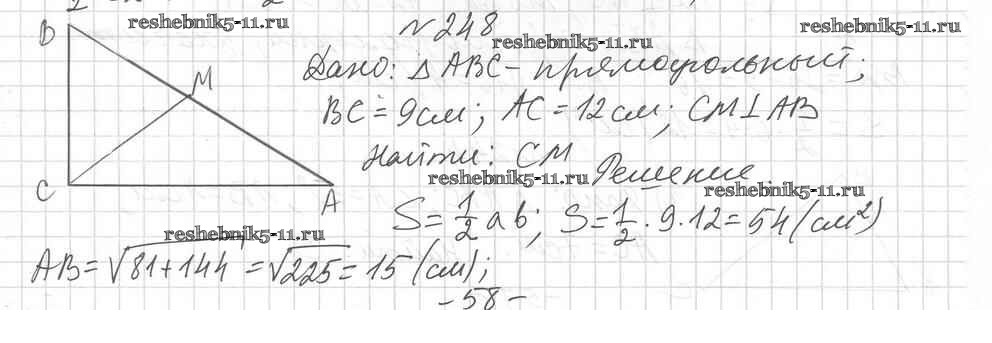 reshebnik5-11.ru
№248
reshebnik5-11.ru
reshebnik5-11.ru
B
M
C
A
Дано: Δ ABC - прямоугольный;
BC = 9см; AC = 12 см; CM⊥AB
Найти: CM
reshebnik5-11.ru
Решение
reshebnik5-11.ru
S = 1/2 ab; S = 1/2 · 9 · 12 = 54 (см²)
reshebnik5-11.ru
AB = √81+144 = √225 = 15 (см);
- 58 -